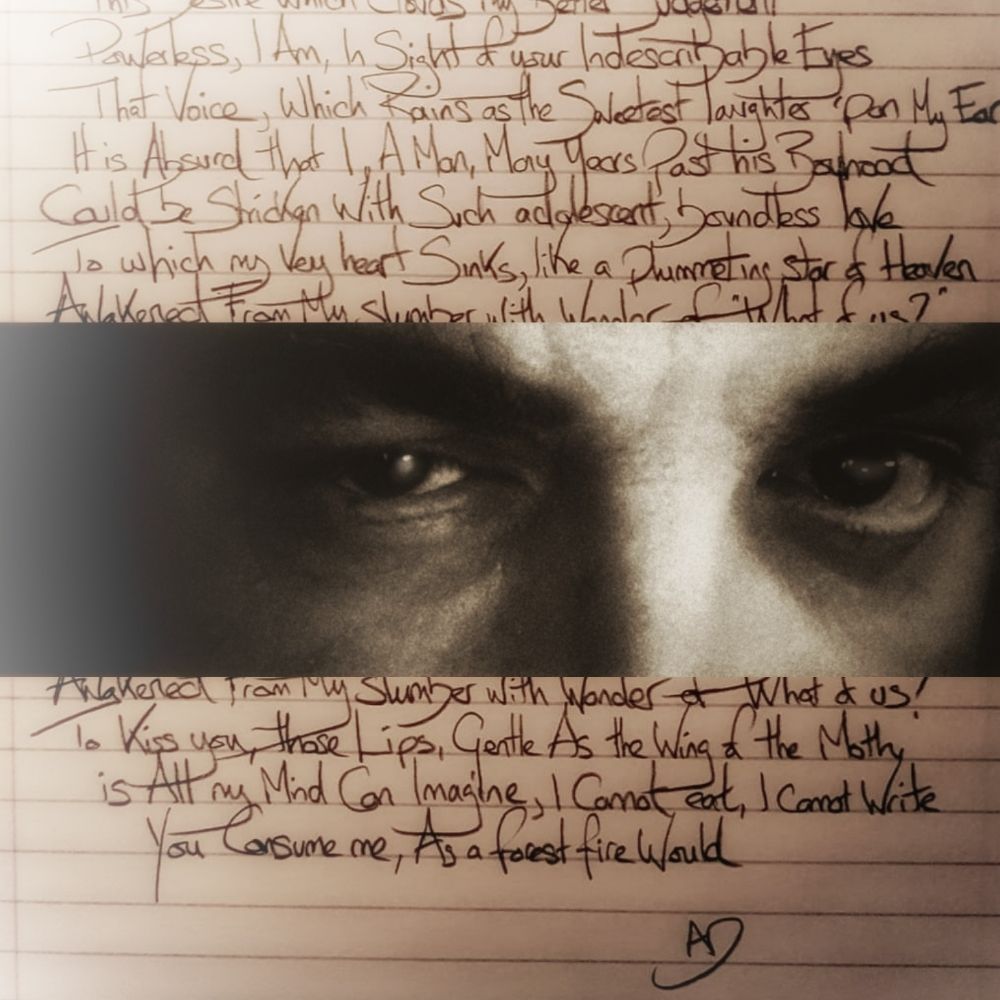 This Desire Which Clouds my Better
Powerless, I Am, In Sight of your Indescribable Eyes
That Voice, Which Rains as the Sweetest laughter 'pon My Ear
It is Absurd that I, A Man, Many Years Past his Boyhood
Could be Stricken With Such adolescent, boundless love
To which my Very heart Sinks, like a Plummeting Star of Heaven
Awakened From My Slumber with Wonder of "What of us?"
Awakened From My Slumber with Wonder of What of us!
To Kiss you, those Lips, Gentle As the Wing of the Moth,
is All my Mind Can Imagine, I Cannot eat, I Cannot Write
You Consume me, As a forest fire Would
AD